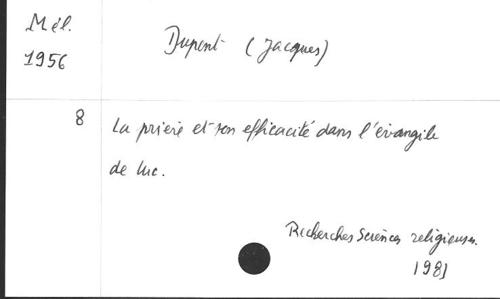 Mél.
1956
Dupont (Jacques)
8
La prière et son efficacité dans l'évangile
de Luc.
Recherches Sciences religieuses.
1981